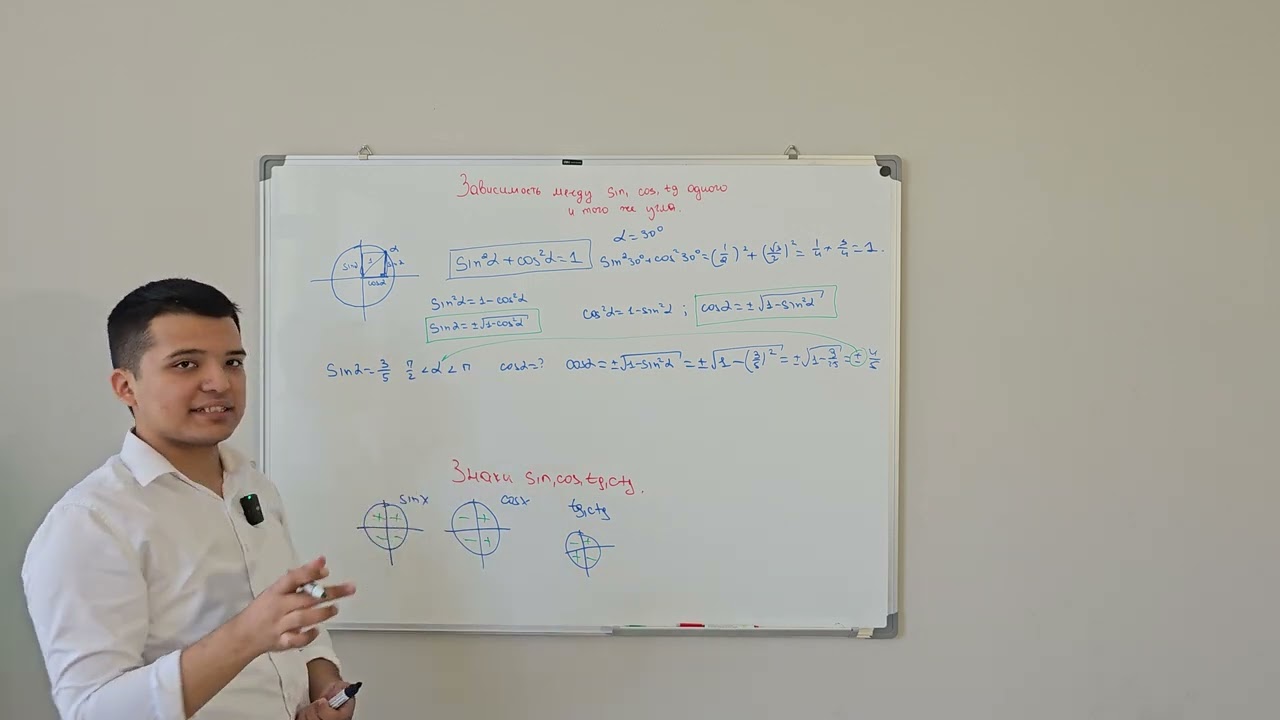 Зависимость между sin, cos, tg одного
и того же угла.
α=30°
sin²α+cos²α=1 sin²30°+cos²30°=(1/2)²+(√3/2)²=1/4+3/4=1.
α
sinα 1 sinα
cosα
sin²α=1-cos²α cos²α=1-sin²α; cosα=±√1-sin²α
sinα=±√1-cos²α
sinα=3/5 π/2<α<π cosα=? cosα=±√1-sin²α=±√1-(3/5)²=±√1-9/25=±4/5
Знаки sin, cos, tg, ctg.
sinx cosx tg, ctg
+ + - + - +
- - - + + -